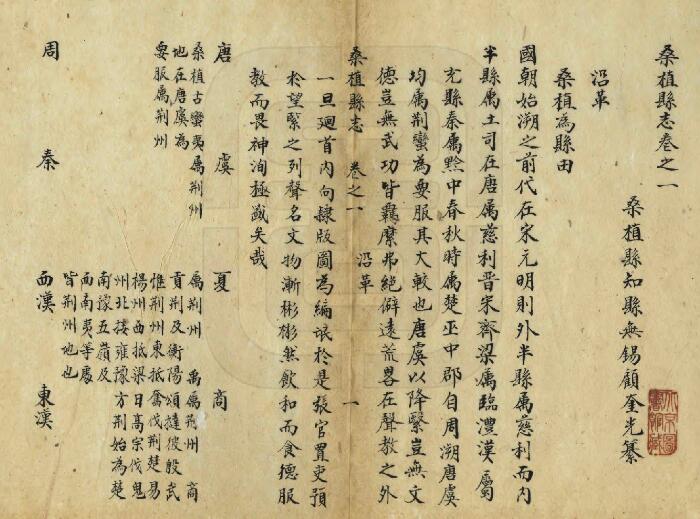 桑植縣志卷之一
桑植縣知縣無錫顧奎光纂
沿革
桑植為縣由
國朝始溯之前代在宋元明則外半縣属慈利而内
半縣属土司在唐属慈利晋宋齊梁属臨澧漢屬
充縣秦属黔中春秋時属楚巫中郡自周溯唐虞
均属荆蠻為要服其大較也唐虞以降緊豈無文
德豈無武功皆羈縻弗絕僻遠荒畧在聲教之外
桑植縣志 卷之一 沿革 一
一旦廻首内向隸版圖為編氓於是張官置吏預
於望緊之列聲名文物漸彬彬然飲和而食德服
教而畏神洵極盛矣哉
唐 虞 夏 商
桑植古蠻夷属荆州
地在唐虞為
要服属荆州
属荆州 禹属荆州 商
貢荆及衡陽頌撻彼殷武
惟荆州東抵奮伐荆楚易
楊州西抵梁日高宗伐鬼
州北接雍豫方荆始為楚
南據五嶺及
西南夷等處
皆荆州地也
周 秦 西漢 東漢